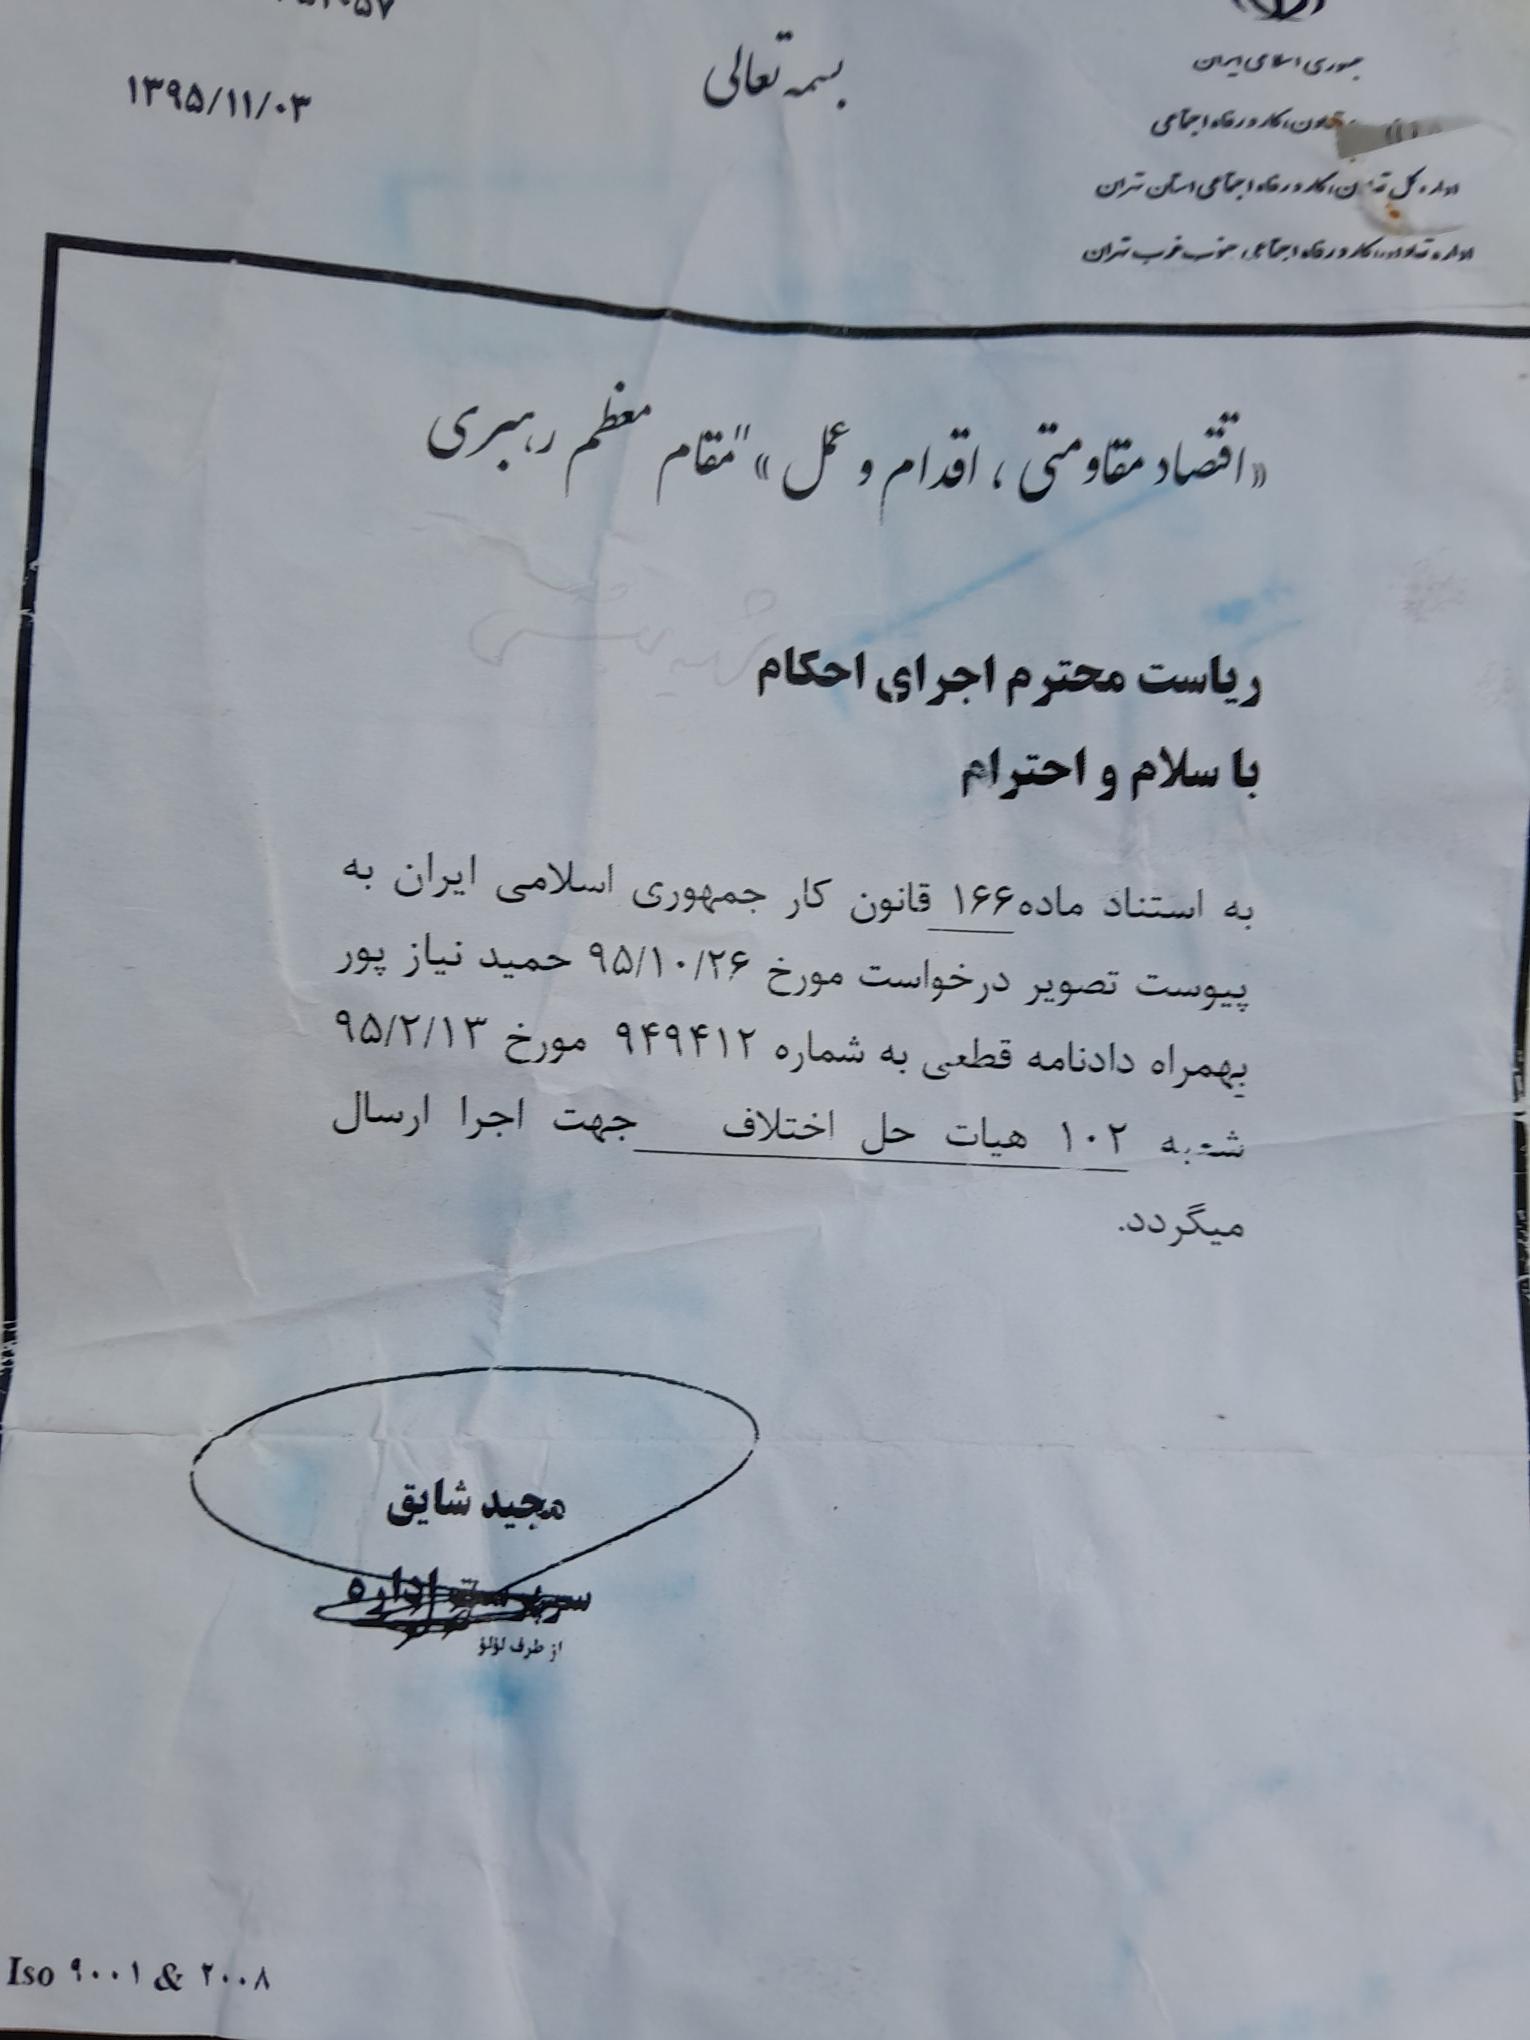 بسمه تعالی
۱۳۹۵/۱۱/۰۳
جمهوری اسلامی ایران
تعاون، کار و رفاه اجتماعی
اداره کل تعاون، کار و رفاه اجتماعی استان تهران
اداره تعاون، کار و رفاه اجتماعی جنوب غرب تهران
«اقتصاد مقاومتی ، اقدام و عمل» "مقام معظم رهبری
ریاست محترم اجرای احکام
با سلام و احترام
به استناد ماده۱۶۶ قانون کار جمهوری اسلامی ایران به
پیوست تصویر درخواست مورخ ۹۵/۱۰/۲۶ حمید نیاز پور
بهمراه دادنامه قطعی به شماره ۹۴۹۴۱۲ مورخ ۹۵/۲/۱۳
شعبه ۱۰۲ هیات حل اختلاف جهت اجرا ارسال
میگردد.
مجید شایق
سرپرست اداره
از طرف لؤلؤ
Iso ۹۰۰۱ & ۲۰۰۸